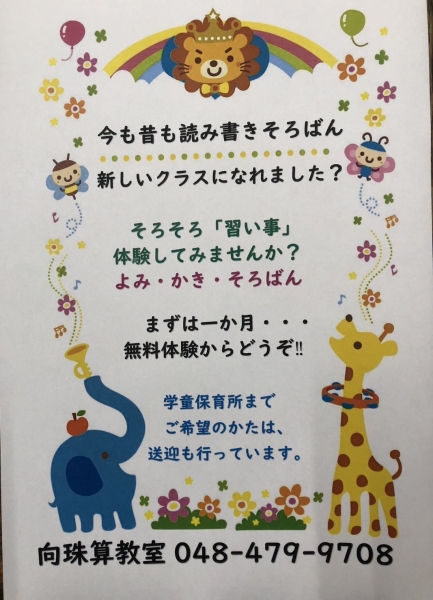 今も昔も読み書きそろばん
新しいクラスになれました？
そろそろ「習い事」
体験してみませんか？
よみ・かき・そろばん
まずは一か月・・・
無料体験からどうぞ‼
学童保育所まで
ご希望のかたは、
送迎も行っています。
向珠算教室 048-479-9708